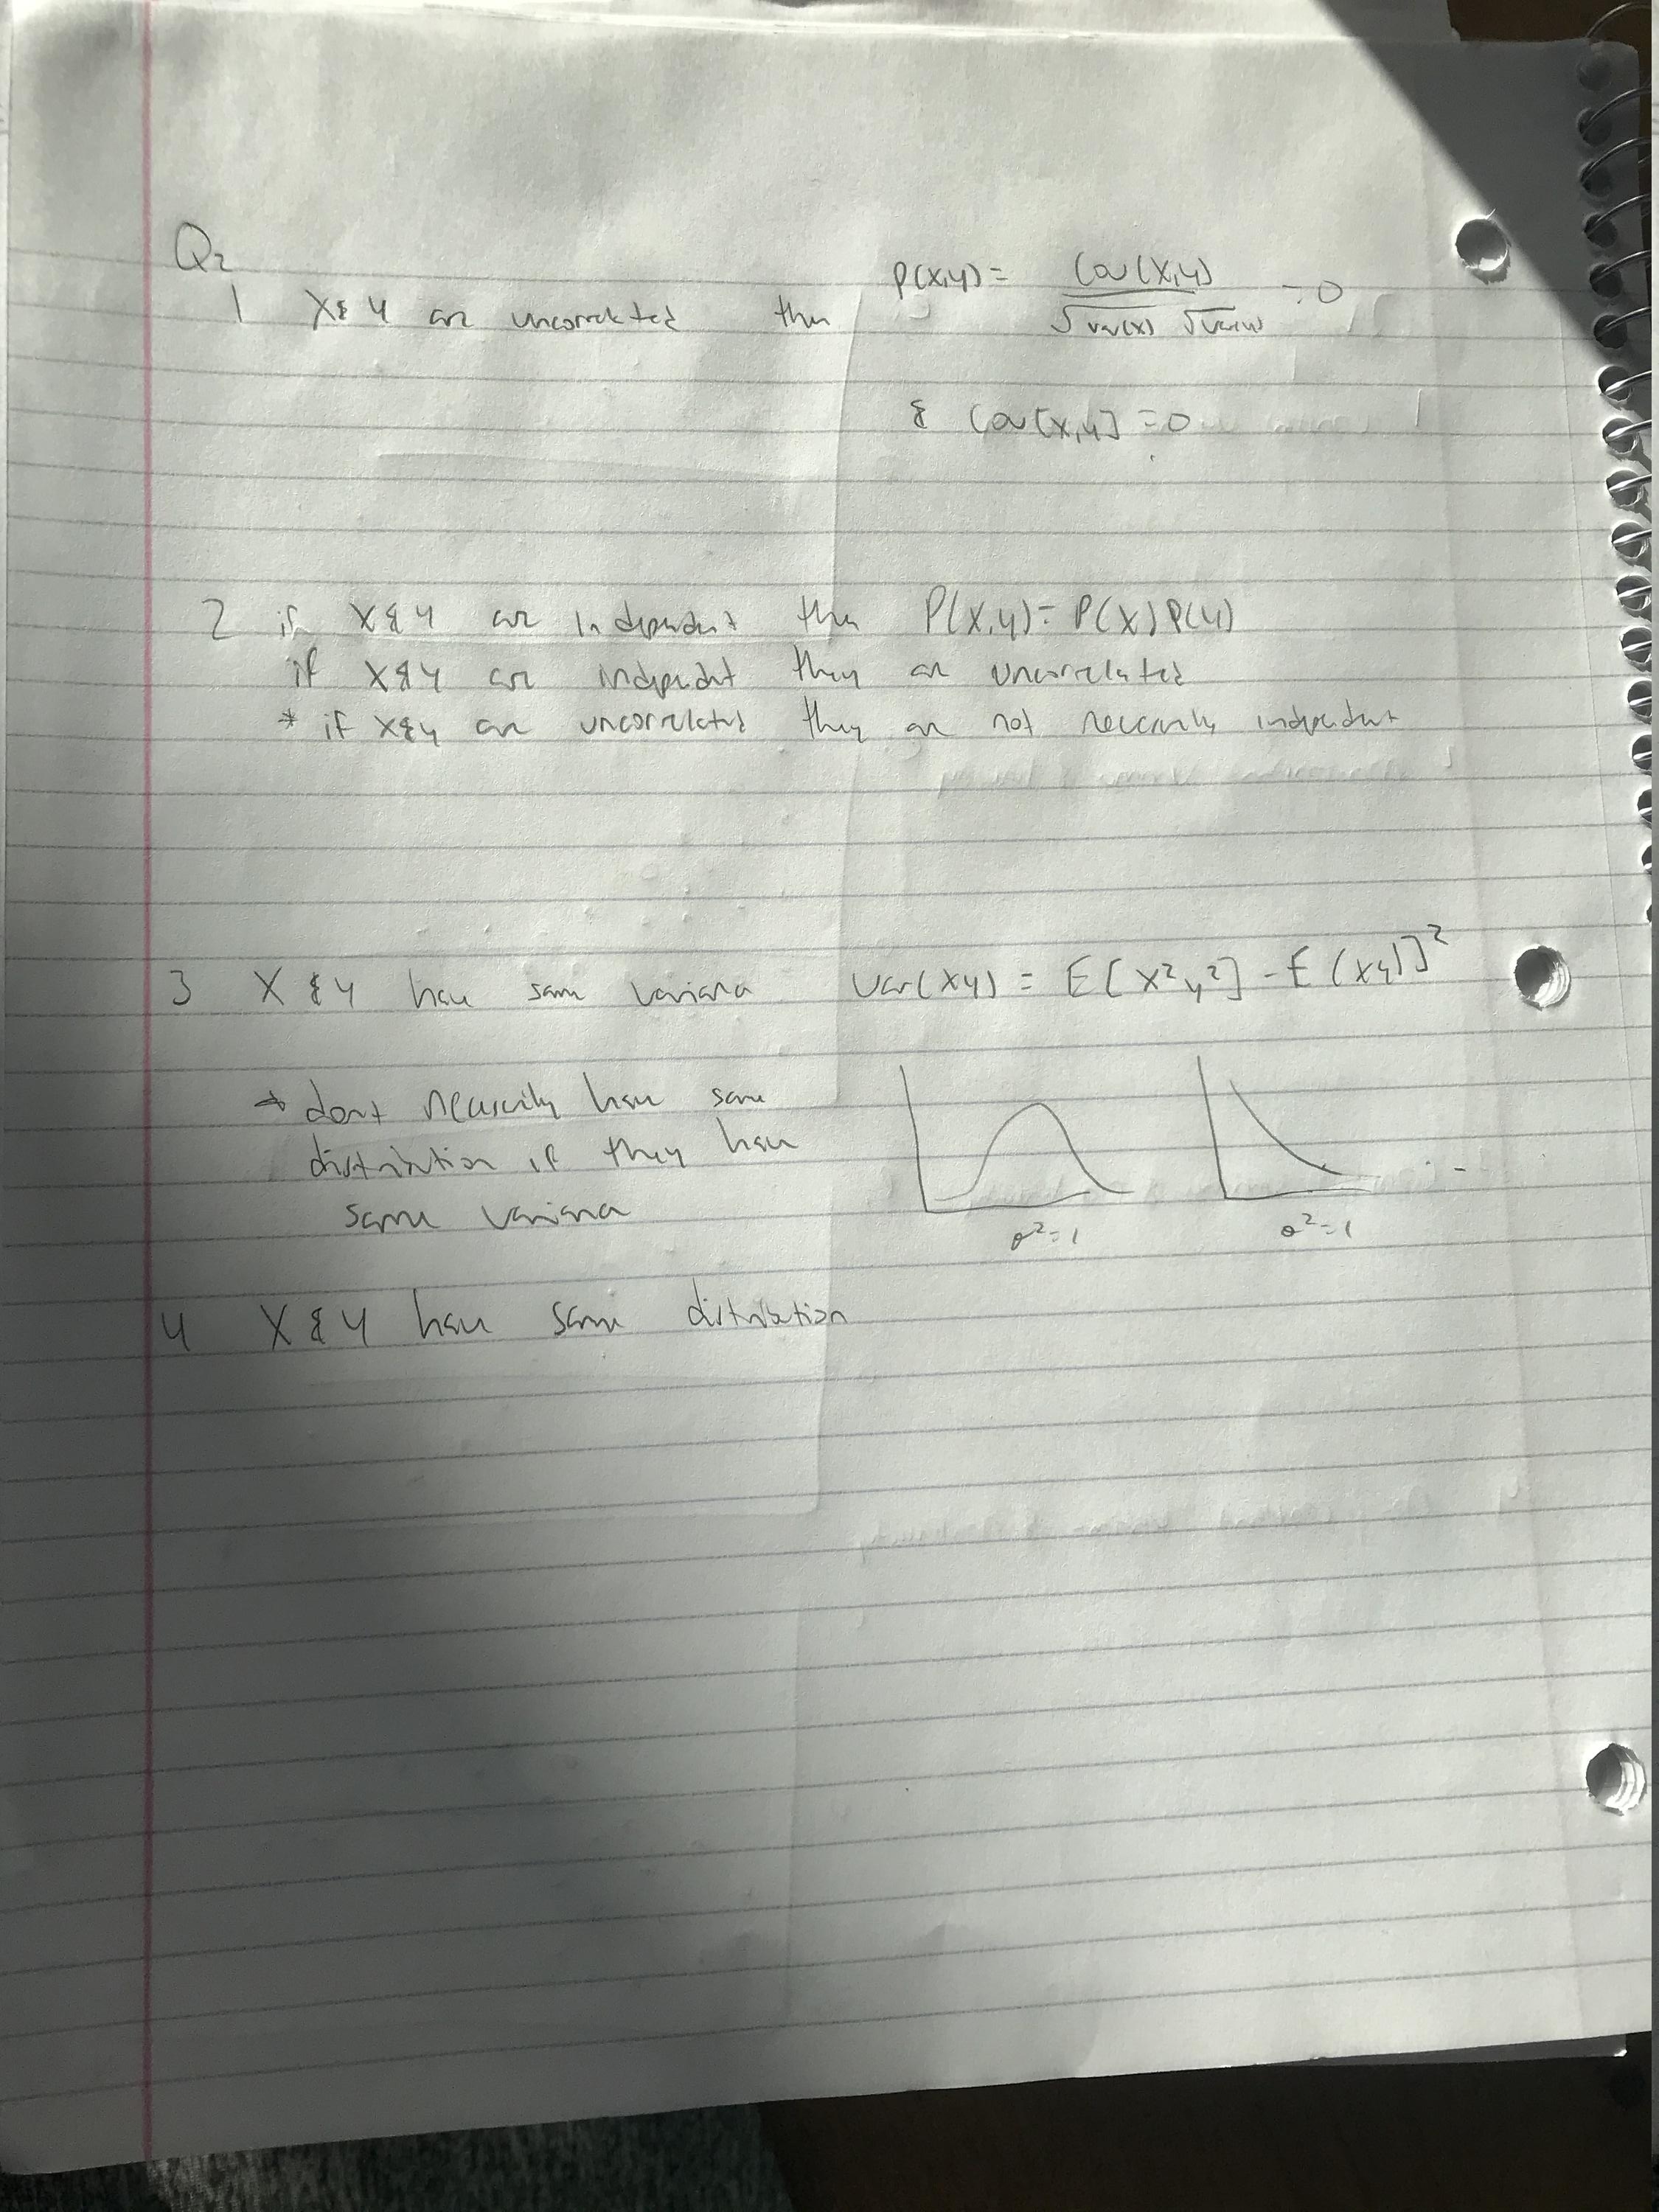 Q2
1 X & Y are uncorrelated then ρ(X,Y) = Cov(X,Y) / √var(x) √var(y) = 0
& Cov[X,Y] = 0
2 if X & Y are independent then P(X,Y) = P(X) P(Y)
if X & Y are indepedent they are uncorrelated
* if X & Y are uncorrelated they are not necessarily independent
3 X & Y have same variance Var(XY) = E[X²Y²] - E(XY)]²
* dont necessarily have same
distribution if they have
same variance
σ²=1 σ²=1
4 X & Y have same distribution